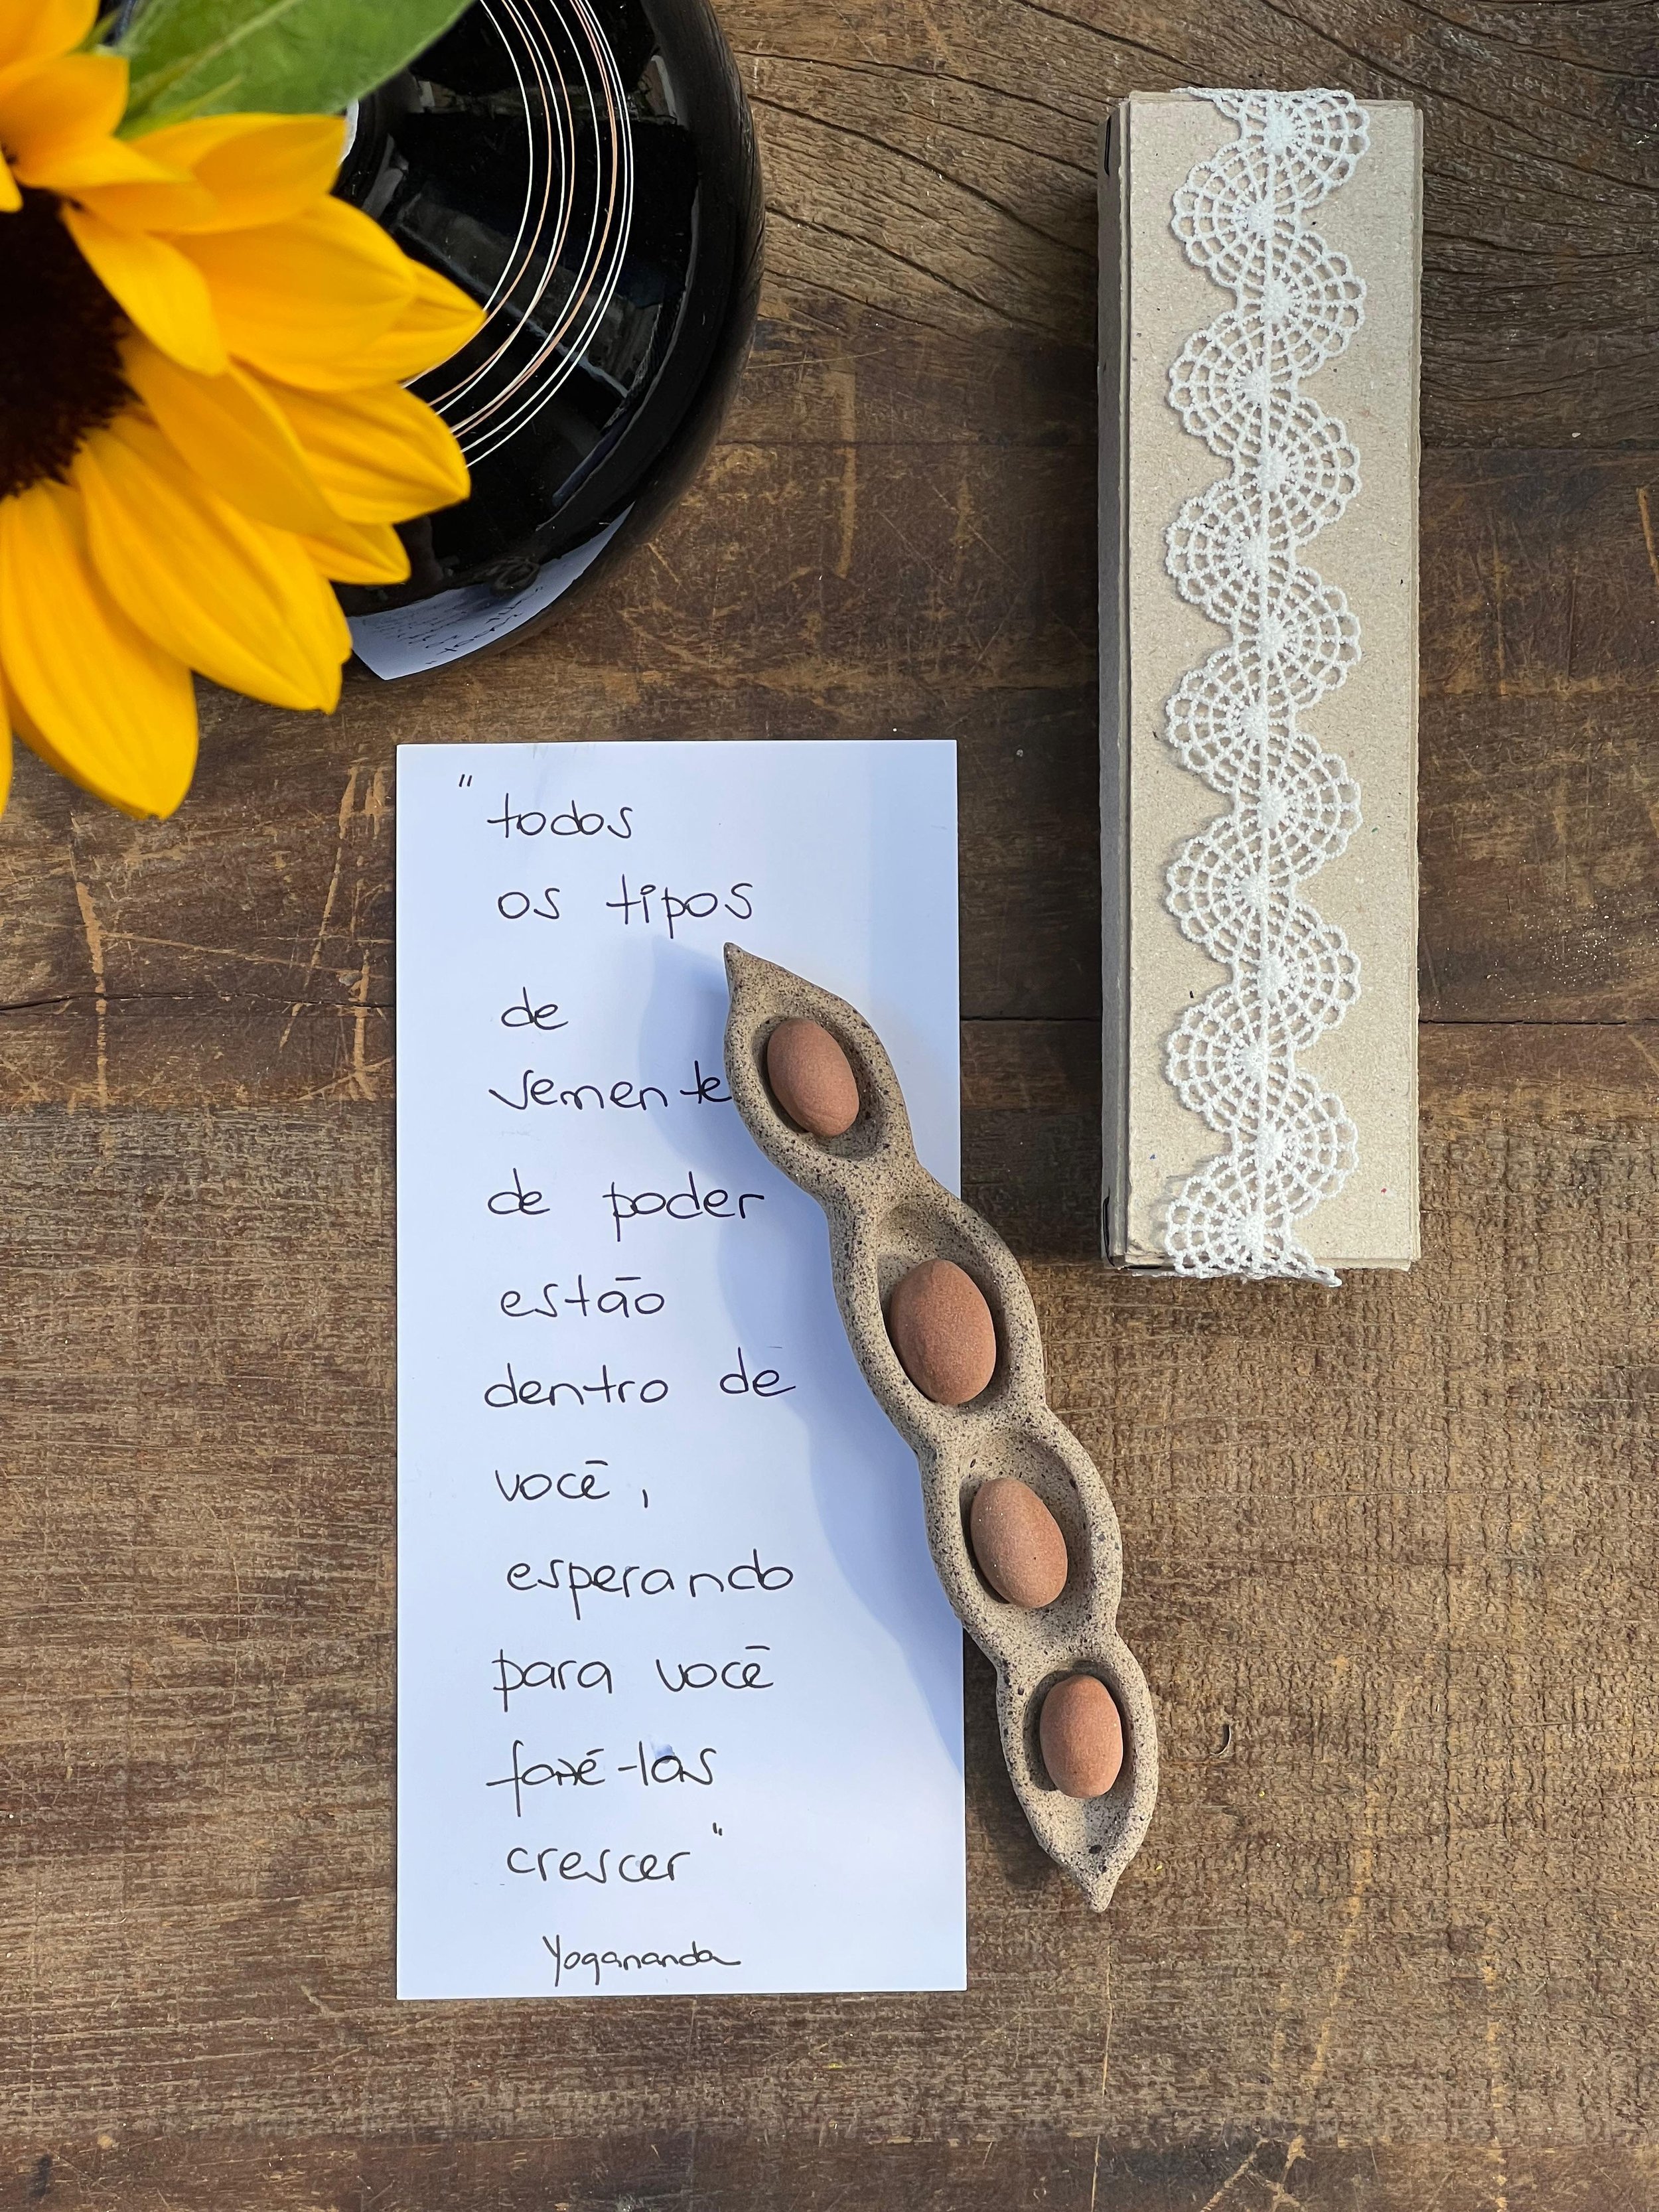 "todos
os tipos
de
semente
de poder
estão
dentro de
você,
esperando
para você
fazê-las
crescer"
Yogananda